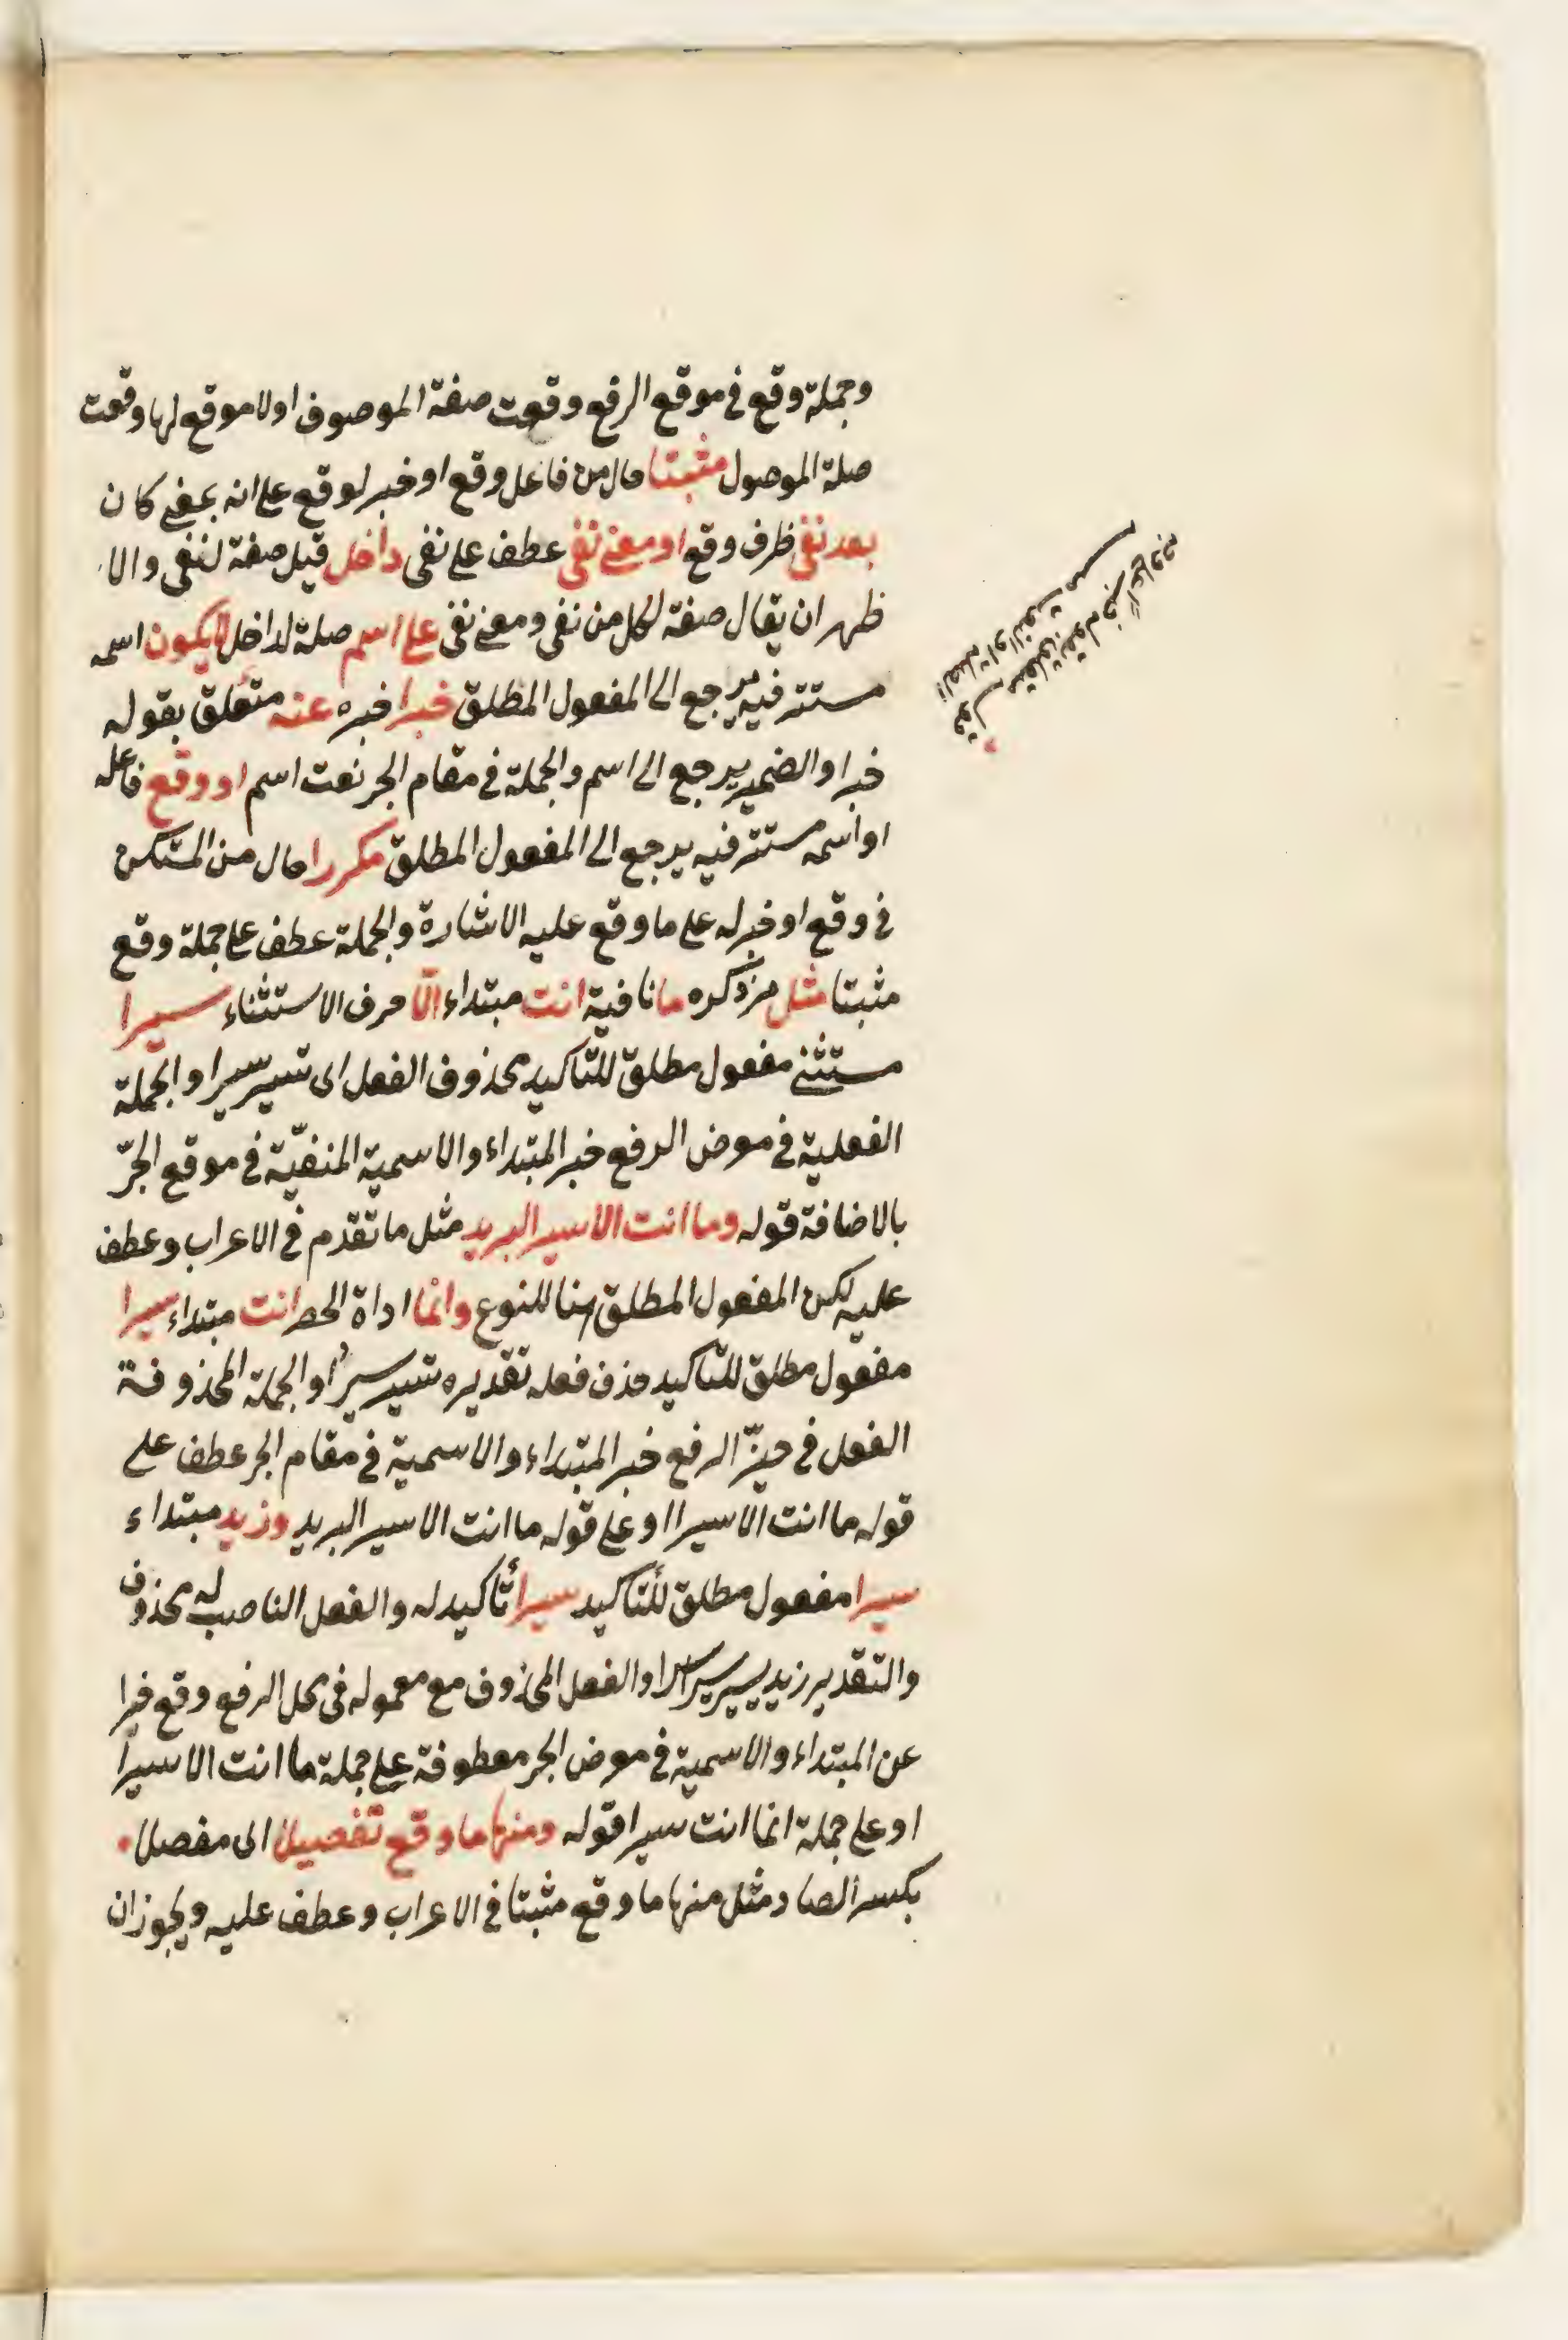 وجملة وقع في موقع الرفع وقعت صفة الموصوف اولا موقع لها وقعت
صلة الموصول مثبتا حال من فاعل وقع او خبر لوقع على انه بمعنى كان
بعد نفى ظرف وقع او معنى نفى عطف على نفى داخل قيل صفة لنفى والا
ظهر ان يقال صفة لكل من نفى ومعنى نفى على اسم صلة لداخل لا يكون اسمه
مستتر فيه يرجع الى المفعول المطلق خبرا خبره عنه متعلق بقوله
خبرا والضمير يرجع الى اسم والجملة في مقام الجر نعت اسم او وقع فاعله
او اسمه مستتر فيه يرجع الى المفعول المطلق مكررا حال من المستكن
في وقع او خبر له على ما وقع عليه الاشارة والجملة عطف على جملة وقع
مثبتا مثل مر ذكره ما نافية انت مبتداء الّا حرف الاستثناء سيرا
مستثنى مفعول مطلق للتاكيد محذوف الفعل اى تسير سيرا والجملة
الفعلية في موض الرفع خبر المبتداء والاسمية المنفيّة في موقع الجرّ
بالاضافة قوله وما انت الا سير البريد مثل ما تقدم في الاعراب وعطف
عليه لكن المفعول المطلق هنا للنوع وانما اداة الحصر انت مبتداء سيرا
مفعول مطلق للتاكيد حذف فعله تقديره تسير سيرا والجملة المحذوفة
الفعل في حيّز الرفع خبر المبتداء والاسمية في مقام الجر عطف على
قوله ما انت الا سيرا او على قوله ما انت الا سير البريد وزيد مبتداء
سيرا مفعول مطلق للتاكيد سيرا تاكيد له والفعل الناصب له محذوف
والتقدير زيد يسير سيرا سيرا والفعل المحذوف مع معموله في محل الرفع وقع خبرا
عن المبتداء والاسمية في موض الجر معطوفة على جملة ما انت الا سيرا
او على جملة انما انت سيرا قوله ومنها ما وقع تفصيلا اى مفصلا
بكسر الصاد مثل منها ما وقع مثبتا في الاعراب وعطف عليه ويجوز ان